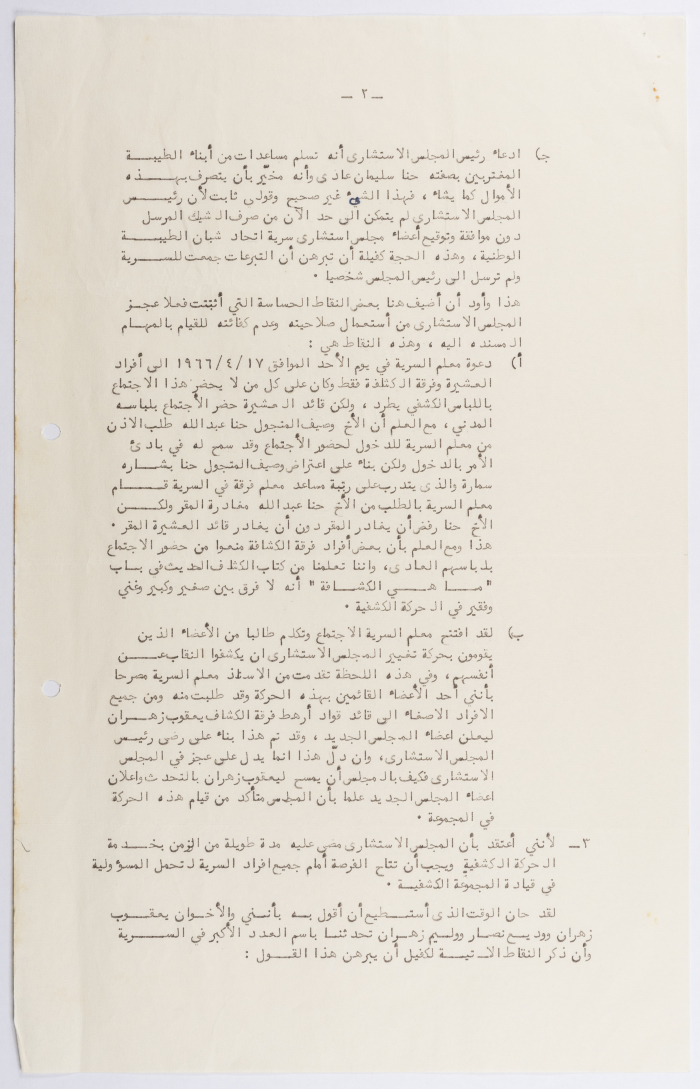 — ٢ —
ج) ادعاء رئيس المجلس الاستشاري أنه تسلم مساعدات من أبناء الطيبة
المغتربين بصفته حنا سليمان عادي وأنه مخيّر بأن يتصرف بهذه
الأموال كما يشاء ، فهذا الشيء غير صحيح وقولي ثابت لأن رئيس
المجلس الاستشاري لم يتمكن الى حد الآن من صرف الشيك المرسل
دون موافقة وتوقيع أعضاء مجلس استشاري سرية اتحاد شبان الطيبة
الوطنية ، وهذه الحجة كفيلة أن تبرهن أن التبرعات جمعت للسرية
ولم ترسل الى رئيس المجلس شخصيا .
هذا وأود أن أضيف هنا بعض النقاط الحساسة التي أثبتت فعلا عجز
المجلس الاستشاري من أستعمال صلاحيته وعدم كفائته للقيام بالمهام
المسنده اليه ، وهذه النقاط هي :
أ) دعوة معلم السرية في يوم الأحد الموافق ١٩٦٦/٤/١٧ الى أفراد
العشيرة وفرقة الكشافة فقط وكان على كل من لا يحضر هذا الاجتماع
باللباس الكشفي يطرد ، ولكن قائد العشيرة حضر الأجتماع بلباسه
المدني ، مع العلم أن الأخ وصيف المتجول حنا عبد الله طلب الاذن
من معلم السرية للدخول لحضور الأجتماع وقد سمح له في بادئ
الأمر بالدخول ولكن بناء على اعتراض وصيف المتجول حنا بشاره
سمارة والذي يتدرب على رتبة مساعد معلم فرقة في السرية قام
معلم السرية بالطلب من الأخ حنا عبد الله مغادرة المقر ولكن
الأخ حنا رفض أن يغادر المقر دون أن يغادر قائد العشيرة المقر .
هذا ومع العلم بأن بعض أفراد فرقة الكشافة منعوا من حضور الاجتماع
بلباسهم العادي ، واننا تعلمنا من كتاب الكشاف الحديث في باب
" ما هي الكشافة " أنه لا فرق بين صغير وكبير وغني
وفقير في الحركة الكشفية .
ب) لقد افتتح معلم السرية الاجتماع وتكلم طالبا من الأعضاء الذين
يقومون بحركة تغيير المجلس الاستشاري ان يكشفوا النقاب عن
أنفسهم ، وفي هذه اللحظة تقدمت من الاستاذ معلم السرية مصرحا
بأنني أحد الأعضاء القائمين بهذه الحركة وقد طلبت منه ومن جميع
الافراد الاصغاء الى قائد قواد أرهط فرقة الكشاف يعقوب زهران
ليعلن اعضاء المجلس الجديد ، وقد تم هذا بناء على رضى رئيس
المجلس الاستشاري ، وان دلّ هذا انما يدل على عجز في المجلس
الاستشاري فكيف بالمجلس أن يسمح ليعقوب زهران بالتحدث واعلان
اعضاء المجلس الجديد علما بأن المجلس متأكد من قيام هذه الحركة
في المجموعة .
٣ـ لأنني أعتقد بأن المجلس الاستشاري مضى عليه مدة طويلة من الزمن بخدمة
الحركة الكشفية ويجب أن تتاح الفرصة أمام جميع افراد السرية لتحمل المسؤولية
في قيادة المجموعة الكشفية .
لقد حان الوقت الذي أستطيع أن أقول به بأنني والأخوان يعقوب
زهران ووديع نصار ووليم زهران تحدثنا باسم العدد الأكبر في السرية
وأن ذكر النقاط الاتية لكفيل أن يبرهن هذا القول :